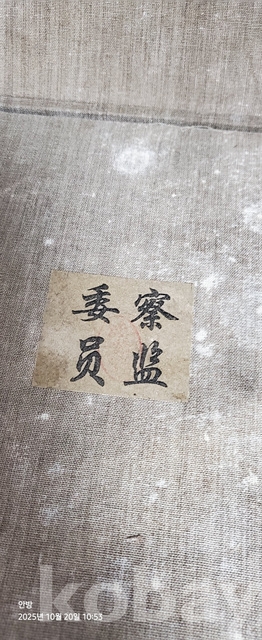 察监
委员
안방
2025년 10월 20일 10:53
kobay